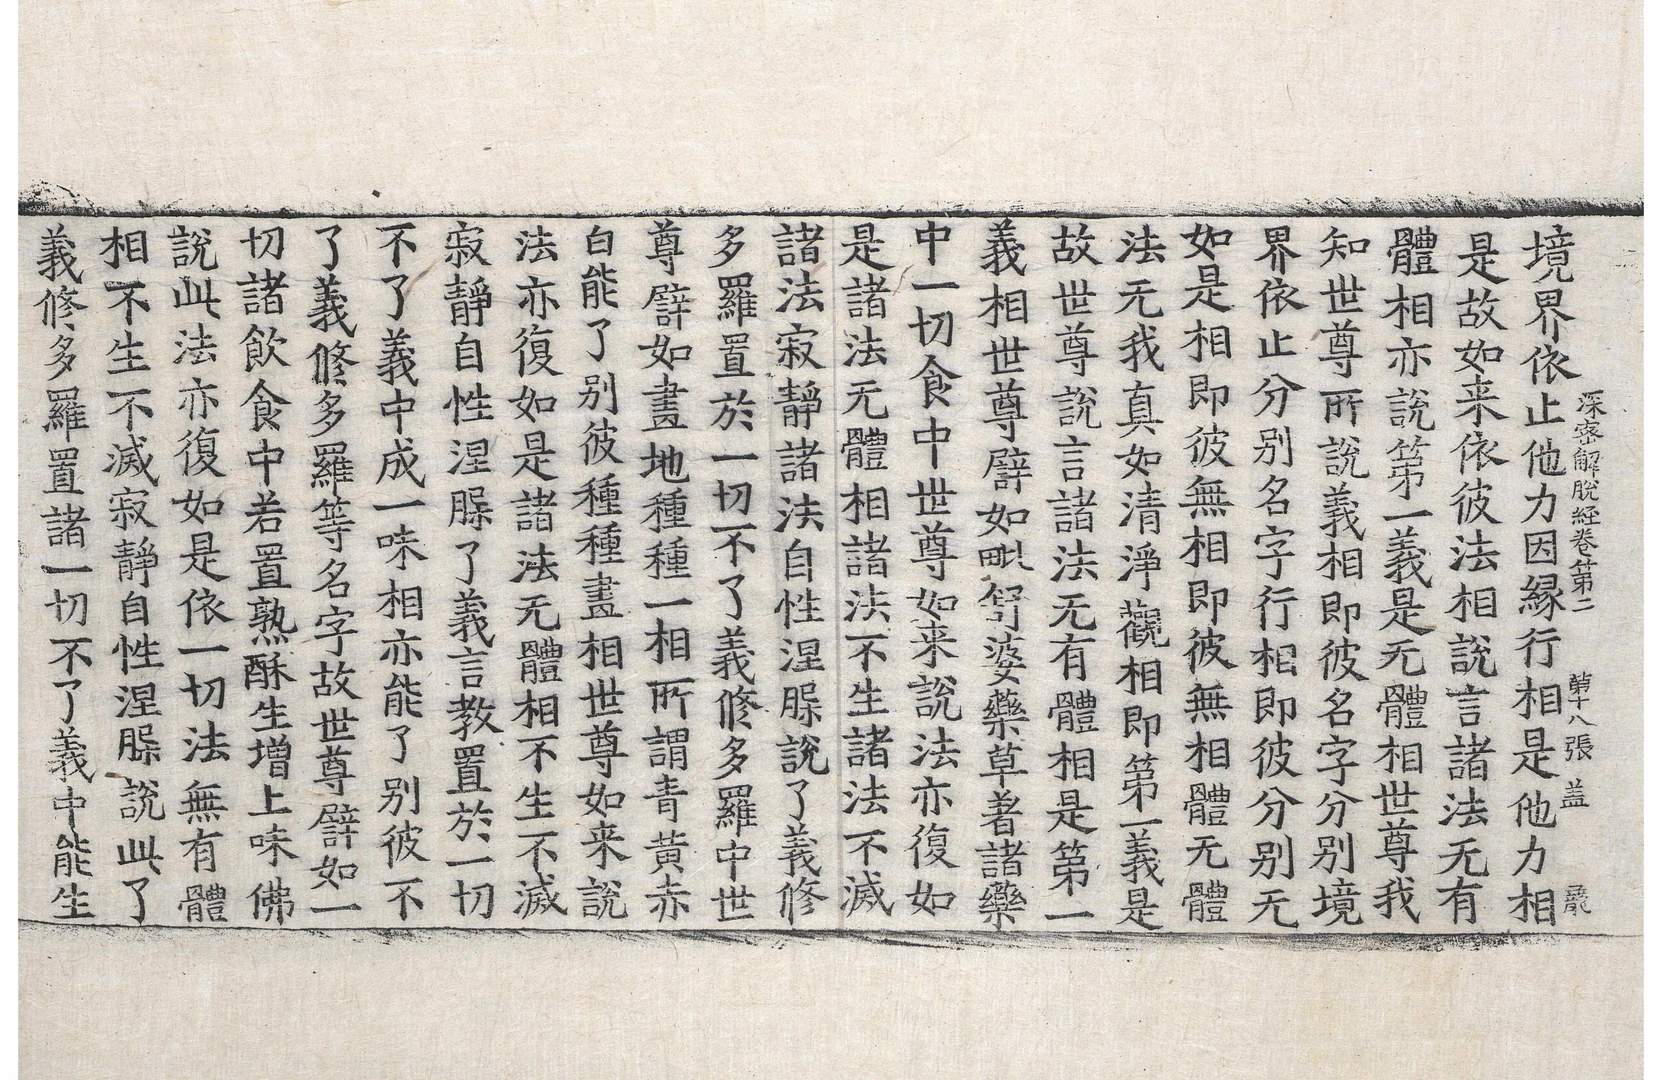 深密解脫経卷第二 第十八張 盖
境界依止他力因緣行相是他力相
是故如来依彼法相說言諸法无有
體相亦說第一義是无體相世尊我
知世尊所說義相即彼名字分別境
界依止分別名字行相即彼分別无
如是相即彼無相即彼無相體无體
法无我真如清淨觀相即第一義是
故世尊說言諸法无有體相是第一
義相世尊譬如毗舒婆藥草著諸藥
中一切食中世尊如来說法亦復如
是諸法无體相諸法不生諸法不滅
諸法寂靜諸法自性涅槃說了義修
多羅置於一切不了義修多羅中世
尊譬如畫地種種一相所謂青黃赤
白能了別彼種種畫相世尊如来說
法亦復如是諸法无體相不生不滅
寂靜自性涅槃了義言教置於一切
不了義中成一味相亦能了別彼不
了義修多羅等名字故世尊譬如一
切諸飲食中若置熟酥生增上味佛
說此法亦復如是依一切法無有體
相不生不滅寂靜自性涅槃說此了
義修多羅置諸一切不了義中能生